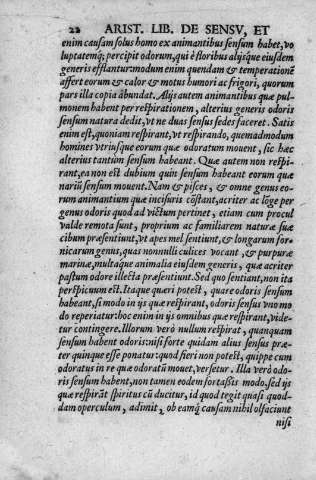 22 ARIST. LIB. DE SENSV, ET
enim causam solus homo ex animantibus sensum habet, vo
luptatemq; percipit odorum, qui è floribus alijsque eiusdem
generis efflantur: modum enim quendam & temperationē
affert eorum & calor & motus humori ac frigori, quorum
pars illa copia abundat. Alijs autem animantibus quæ pul-
monem habent per respirationem, alterius generis odoris
sensum natura dedit, vt ne duas sensus sedes faceret. Satis
enim est, quoniam respirant, vt respirando, quemadmodum
homines vtriusque eorum quæ odoratum mouent, sic hæc
alterius tantùm sensum habeant. Quæ autem non respi-
rant, ea non est dubium quin sensum habeant eorum quæ
nariū sensum mouent. Nam & pisces, & omne genus eo-
rum animantium quæ incisuris cōstant, acriter ac lōge per
genus odoris quod ad victum pertinet, etiam cum procul
valde remota sunt, proprium ac familiarem naturæ suæ
cibum præsentiunt, vt apes mel sentiunt, & longarum for-
nicarum genus, quas nonnulli culices vocant, & purpuræ
marinæ, multaque animalia eiusdem generis, quæ acriter
pastum odore illecta præsentiunt. Sed quo sentiant, non ita
perspicuum est. Itaque quæri potest, quare odoris sensum
habeant, si modo in ijs quæ respirant, odoris sensus vno mo
do reperiatur: hoc enim in ijs omnibus quæ respirant, vide-
tur contingere. Illorum verò nullum respirat, quanquam
sensum habent odoris: nisi forte quidam alius sensus præ-
ter quinque esse ponatur: quod fieri non potest, quippe cum
odoratus in re quæ odoratū mouet, versetur. Illa verò odo-
ris sensum habent, non tamen eodem fortassis modo. sed ijs
quæ respirāt spiritus cū ducitur, id quod tegit quasi quod-
dam operculum, adimit, ob eamq; causam nihil olfaciunt
nisi